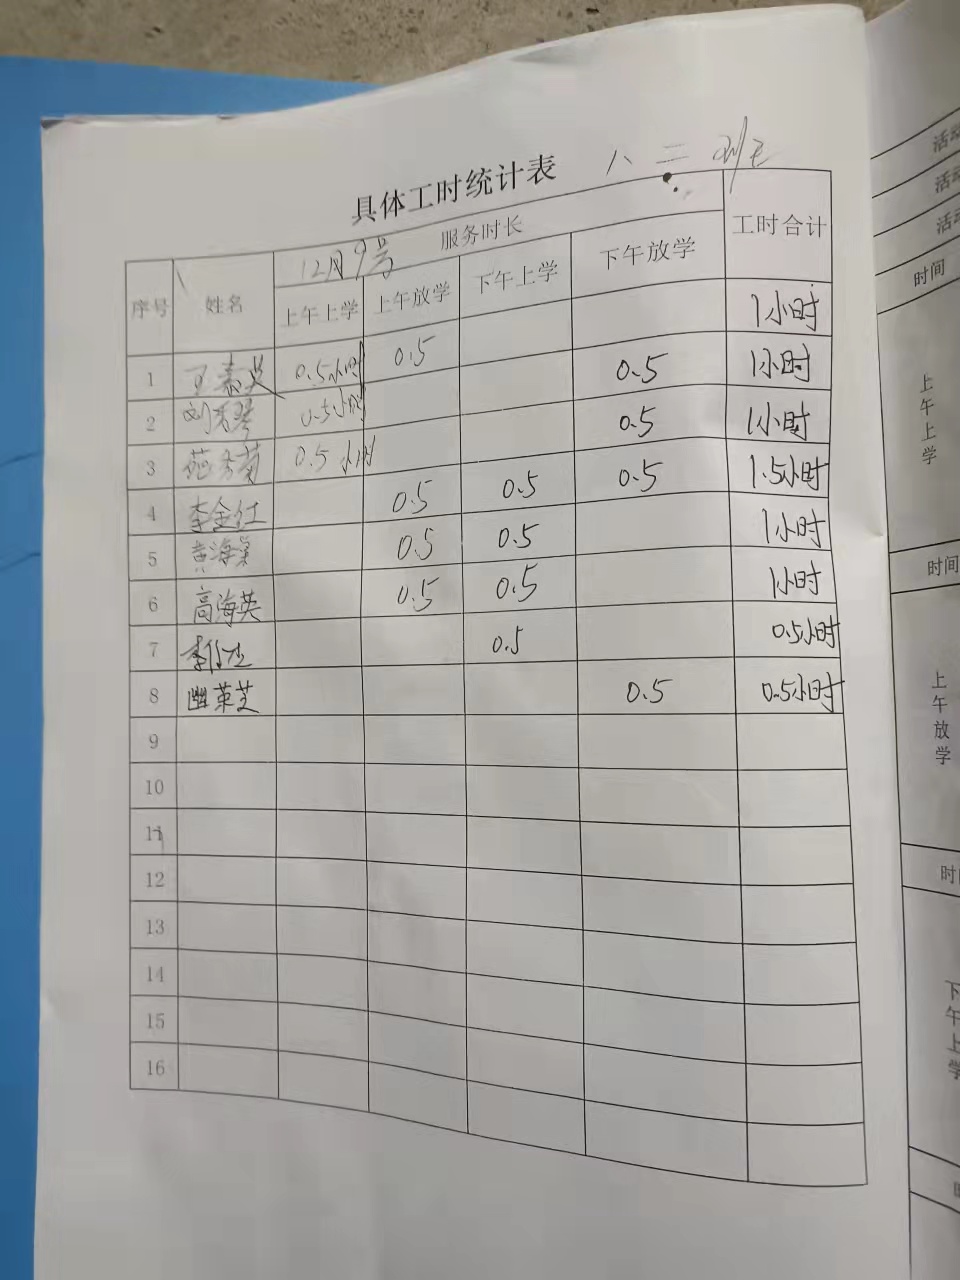 具体工时统计表 八二班
12月9号 服务时长 工时合计
序号 姓名 上午上学 上午放学 下午上学 下午放学
1 0.5小时 0.5 1小时
2 0.5小时 0.5 1小时
3 0.5小时 0.5 1小时
4 李金仕 0.5 0.5 0.5 1.5小时
5 黄海 0.5 0.5 1小时
6 高海英 0.5 0.5 1小时
7 0.5 0.5小时
8 0.5 0.5小时
9
10
11
12
13
14
15
16
活动
活动
活动
时间
上午上学
时间
上午放学
时间
下午上学